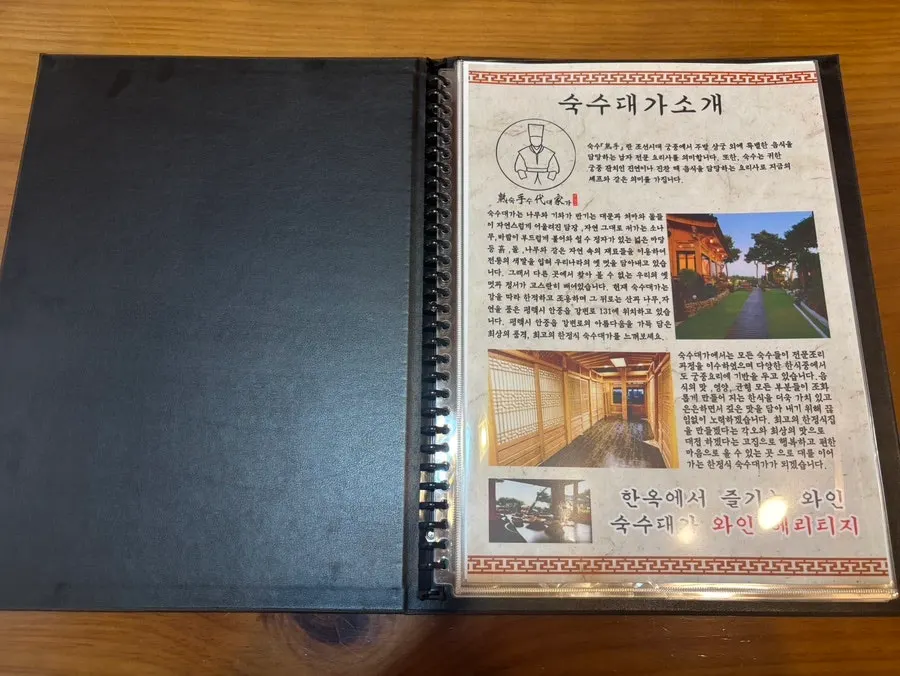 숙수대가소개
숙수「熟手」란 조선시대 궁중에서 주방 상궁 외에 특별한 음식을
담당하는 남자 전문 요리사를 의미합니다. 또한, 숙수는 귀한
궁중 잔치인 진연이나 진찬 때 음식을 담당하는 요리사로 지금의
셰프와 같은 의미를 가집니다.
熟숙 手수 代대 家가
숙수대가는 나무와 기와가 반기는 대문과 처마와 돌들
이 자연스럽게 어울러진 담장 , 자연 그대로 커가는 소나
무, 바람이 부드럽게 불어와 쉴 수 정자가 있는 넓은 마당
등 흙 , 돌 , 나무와 같은 자연 속의 재료들을 이용하여
전통의 색깔을 입혀 우리나라의 옛 멋을 담아내고 있습
니다. 그래서 다른 곳에서 찾아 볼 수 없는 우리의 옛
멋과 정서가 고스란히 배여있습니다. 현재 숙수대가는
강을 따라 한적하고 조용하며 그 뒤로는 산과 나무,자
연을 품은 평택시 안중읍 강변로 131에 위치하고 있습
니다. 평택시 안중읍 강변로의 아름다움을 가득 담은
최상의 품격, 최고의 한정식 숙수대가를 느껴보세요.
숙수대가에서는 모든 숙수들이 전문조리
과정을 이수하였으며 다양한 한식중에서
도 궁중요리에 기반을 두고 있습니다. 음
식의 맛 , 영양, 균형 모든 부분들이 조화
롭게 만들어 지는 한식을 더욱 가치 있고
은은하면서 깊은 맛을 담아 내기 위해 끊
임없이 노력하겠습니다. 최고의 한정식집
을 만들겠다는 각오와 최상의 맛으로
대접 하겠다는 고집으로 행복하고 편한
마음으로 올 수 있는 곳 으로 대를 이어
가는 한정식 숙수대가가 되겠습니다.
한옥에서 즐기는 와인
숙수대가 와인 헤리티지